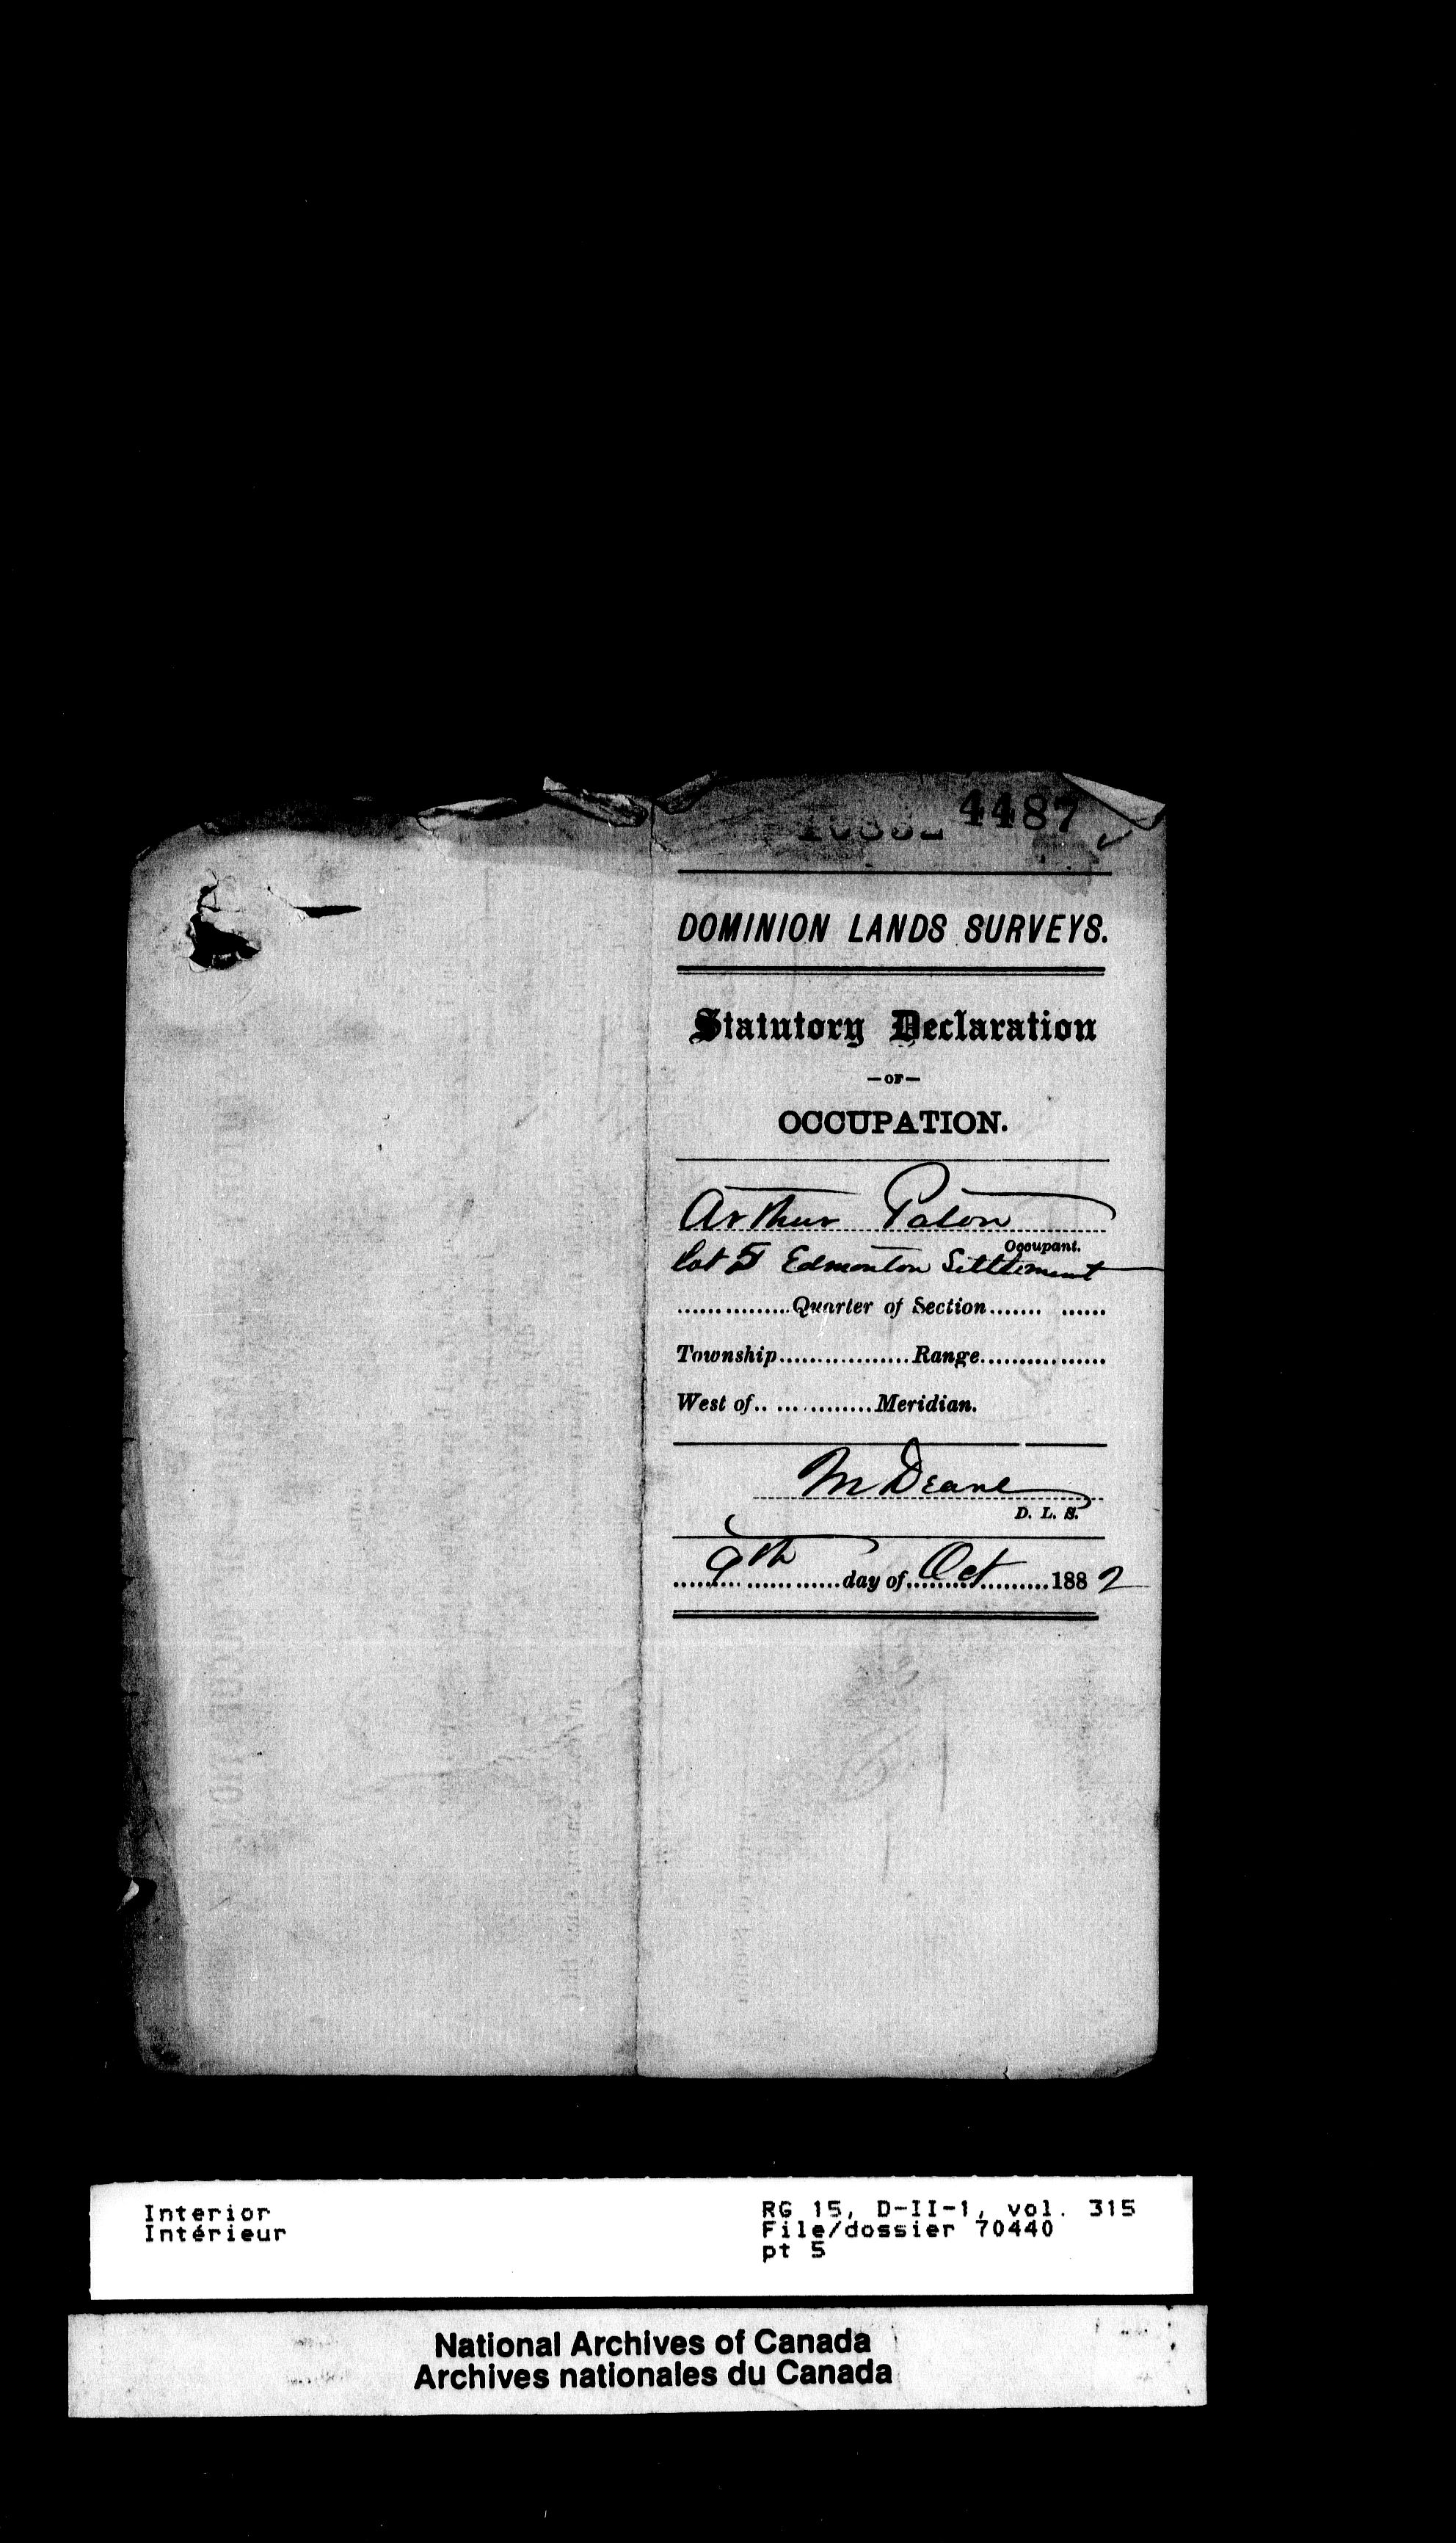 4487
DOMINION LANDS SURVEYS.
Statutory Declaration
—OF—
OCCUPATION.
Arthur Paton
Occupant.
Lot 5 Edmonton Settlement
...............Quarter of Section....... ......
Township.................Range................
West of.. .............Meridian.
M Deane
D. L. S.
9th day of Oct 1882
Interior
Intérieur
RG 15, D-II-1, vol. 315
File/dossier 70440
pt 5
National Archives of Canada
Archives nationales du Canada